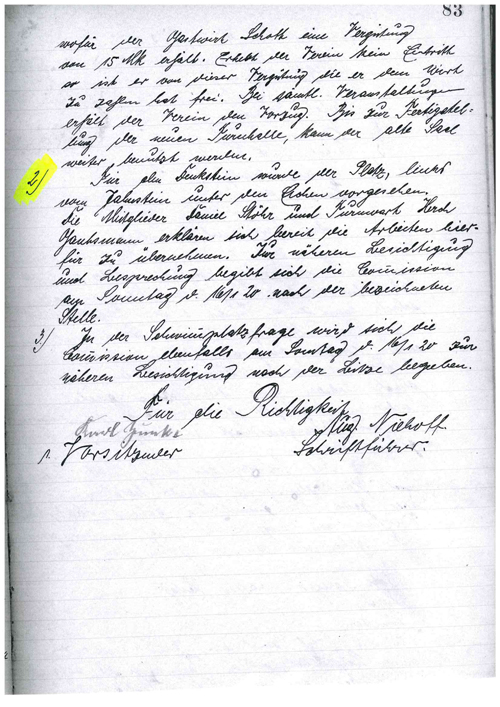 83
wofür der Gastwirt Schott eine Vergütung
von 15 Mk erhält. Erhebt der Verein kein Eintritt
so ist er von dieser Vergütung die er dem Wirt
zu zahlen hat frei. Bei sämtl. Veranstaltungen
erhält der Verein den Vorzug. Bis zur Fertigstel-
lung der neuen Turnhalle, kann der alte Saal
weiter benutzt werden.
2) Für den Denkstein wurde der Platz, links
vom Jahnstein unter den Eichen vorgesehen.
Die Mitglieder Daniel Stöhr und Turnwart
erklären sich bereit die Arbeiten hier-
für zu übernehmen. Zur näheren Besichtigung
und Besprechung begibt sich die Commission
am Sonntag d. 16/1 20 nach der bezeichneten
Stelle.
3) In der Schwimmplatzfrage wird sich die
Commission ebenfalls am Sontag d. 16/1 20 zur
näheren Besichtigung nach der begeben.
Für die Richtigkeit
Karl Aug. Niehoff
Vorsitzender Schriftführer.